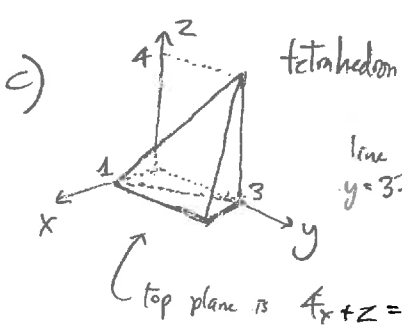 c)
z
4
tetrahedron
1
line
y = 3
3
x
y
top plane is 4x + z =